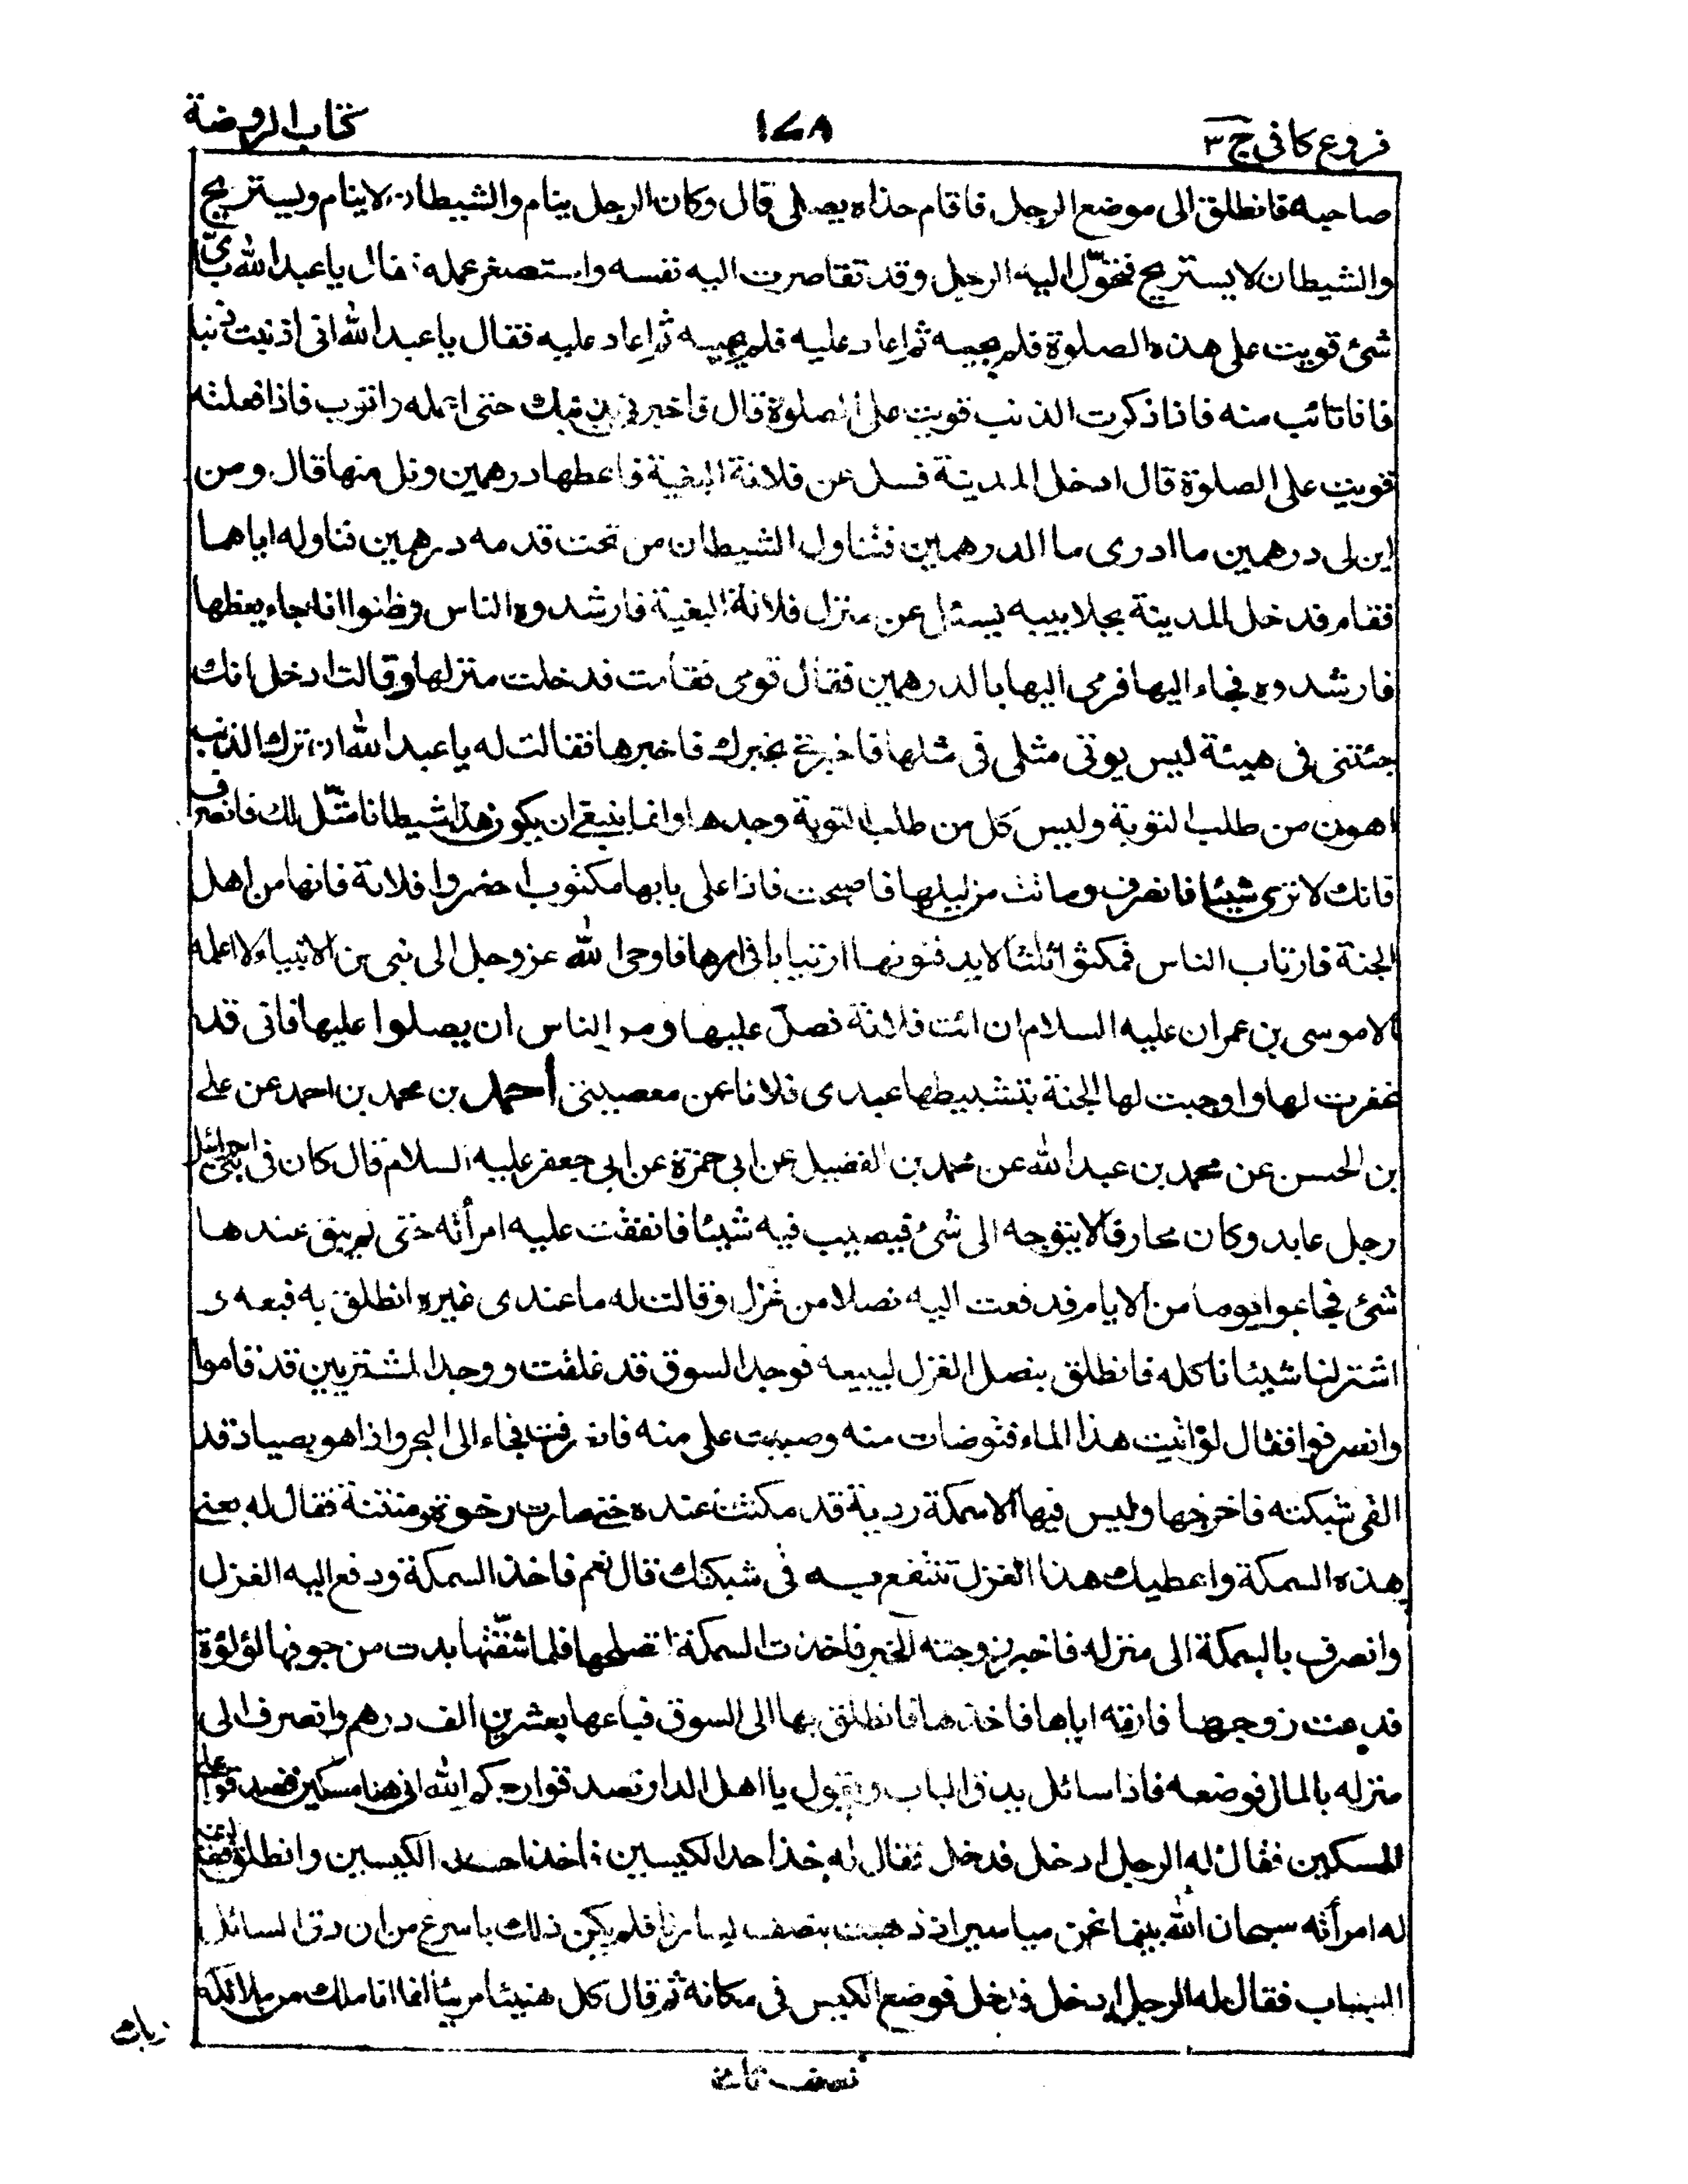 فروع كافى ج ٣
١٧٨
كتاب الروضة
صاحبه فانطلق الى موضع الرجل فاقام حذاه يصلى قال وكان الرجل ينام والشيطان لاينام ويستريح
والشيطان لا يستريح فتحوّل اليه الرجل وقد تقاصرت اليه نفسه واستصغر عمله فقال يا عبد الله باىّ
شئ قويت على هذه الصلوة فلم يجبه ثم اعاد عليه فلم يجبه ثم اعاد عليه فقال يا عبد الله انى اذنبت ذنبا
فانا تائب منه فاذا ذكرت الذنب قويت على الصلوة قال فاخبرنى بذنبك حتى اعمله واتوب فاذا فعلته
قويت على الصلوة قال ادخل المدينة فسل عن فلانة البغية فاعطها درهمين ونل منها قال ومن
اين لى درهمين ما ادرى ما الدرهمين فتناول الشيطان من تحت قدمه درهمين فناوله اياهما
فقام فدخل المدينة بجلابيبه يسئل عن منزل فلانة البغية فارشدوه الناس وظنوا انه جاء يعظها
فارشدوه فجاء اليها فرمى اليها بالدرهمين فقال قومى فقامت فدخلت منزلها وقالت ادخل انك
جئتنى فى هيئة ليس يوتى مثلى فى مثلها فاخبرنى بخبرك فاخبرها فقالت له يا عبد الله ان ترك الذنب
اهون من طلب التوبة وليس كل من طلب التوبة وجدها وانما ينبغى ان يكون هذا شيطانا مثّل لك فانصرف
فانك لا ترى شيئا فانصرف وماتت من ليلتها فاصبحت فاذا على بابها مكتوب احضروا فلانة فانها من اهل
الجنة فارتاب الناس فمكثوا ثلثا لا يدفنونها ارتيابا فى امرها فاوحى الله عز وجل الى نبى من الانبياء لا اعلمه
الا موسى بن عمران عليه السلام ان ائت فلانة فصلّ عليها ومر الناس ان يصلوا عليها فانى قد
غفرت لها واوجبت لها الجنة بتثبيطها عبدى فلانا عن معصيتى أحمد بن محمد بن احمد عن على
بن الحسن عن محمد بن عبد الله عن محمد بن الفضيل عن ابى حمزة عن ابى جعفر عليه السلام قال كان فى بنى اسرائيل
رجل عابد وكان محارفا لا يتوجه الى شئ فيصيب فيه شيئا فانفقت عليه امرأته حتى لم يبق عندها
شئ فجاعوا يوما من الايام فدفعت اليه نصلا من غزل وقالت له ما عندى غيره انطلق به فبعه و
اشتر لنا شيئا ناكله فانطلق بنصل الغزل ليبيعه فوجد السوق قد غلقت ووجد المشتريين قد قاموا
وانصرفوا فقال لو اتيت هذا الماء فتوضات منه وصببت على منه فانصرفت فجاء الى البحر واذا هو بصياد قد
القى شبكته فاخرجها وليس فيها الا سمكة ردية قد مكثت عنده حتى صارت رخوة منتنة فقال له بعنى
هذه السمكة واعطيك هذا الغزل تنتفع به فى شبكتك قال نعم فاخذ السمكة ودفع اليه الغزل
وانصرف بالسمكة الى منزله فاخبر زوجته الخبر فاخذت السمكة لتصلحها فلما شقّتها بدت من جوفها لؤلؤة
فدعت زوجها فارته اياها فاخذها فانطلق بها الى السوق فباعها بعشرين الف درهم وانصرف الى
منزله بالمال فوضعه فاذا سائل يدق الباب ويقول يا اهل الدار تصدقوا رحمكم الله على هذا المسكين
المسكين فقال له الرجل ادخل فدخل فقال له خذ احد الكيسين فاخذ احد الكيسين وانطلق فقالت
له امرأته سبحان الله بينما نحن مياسير اذ ذهبت بنصف يسارنا فلم يكن ذلك باسرع من ان دق السائل
الباب فقال له الرجل ادخل فدخل فوضع الكيس فى مكانه ثم قال كل هنيئا مريئا انما انا ملك من ملائكة
ربك
نصف ثانى